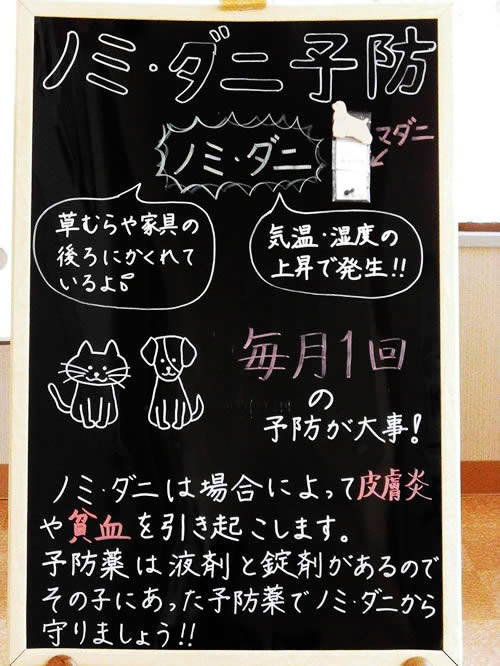 ノミ・ダニ予防
ノミ・ダニ
マダニ
草むらや家具の
後ろにかくれて
いるよ。
気温・湿度の
上昇で発生!!
毎月1回
の
予防が大事!
ノミ・ダニは場合によって皮膚炎
や貧血を引き起こします。
予防薬は液剤と錠剤があるので
その子にあった予防薬でノミ・ダニから
守りましょう!!